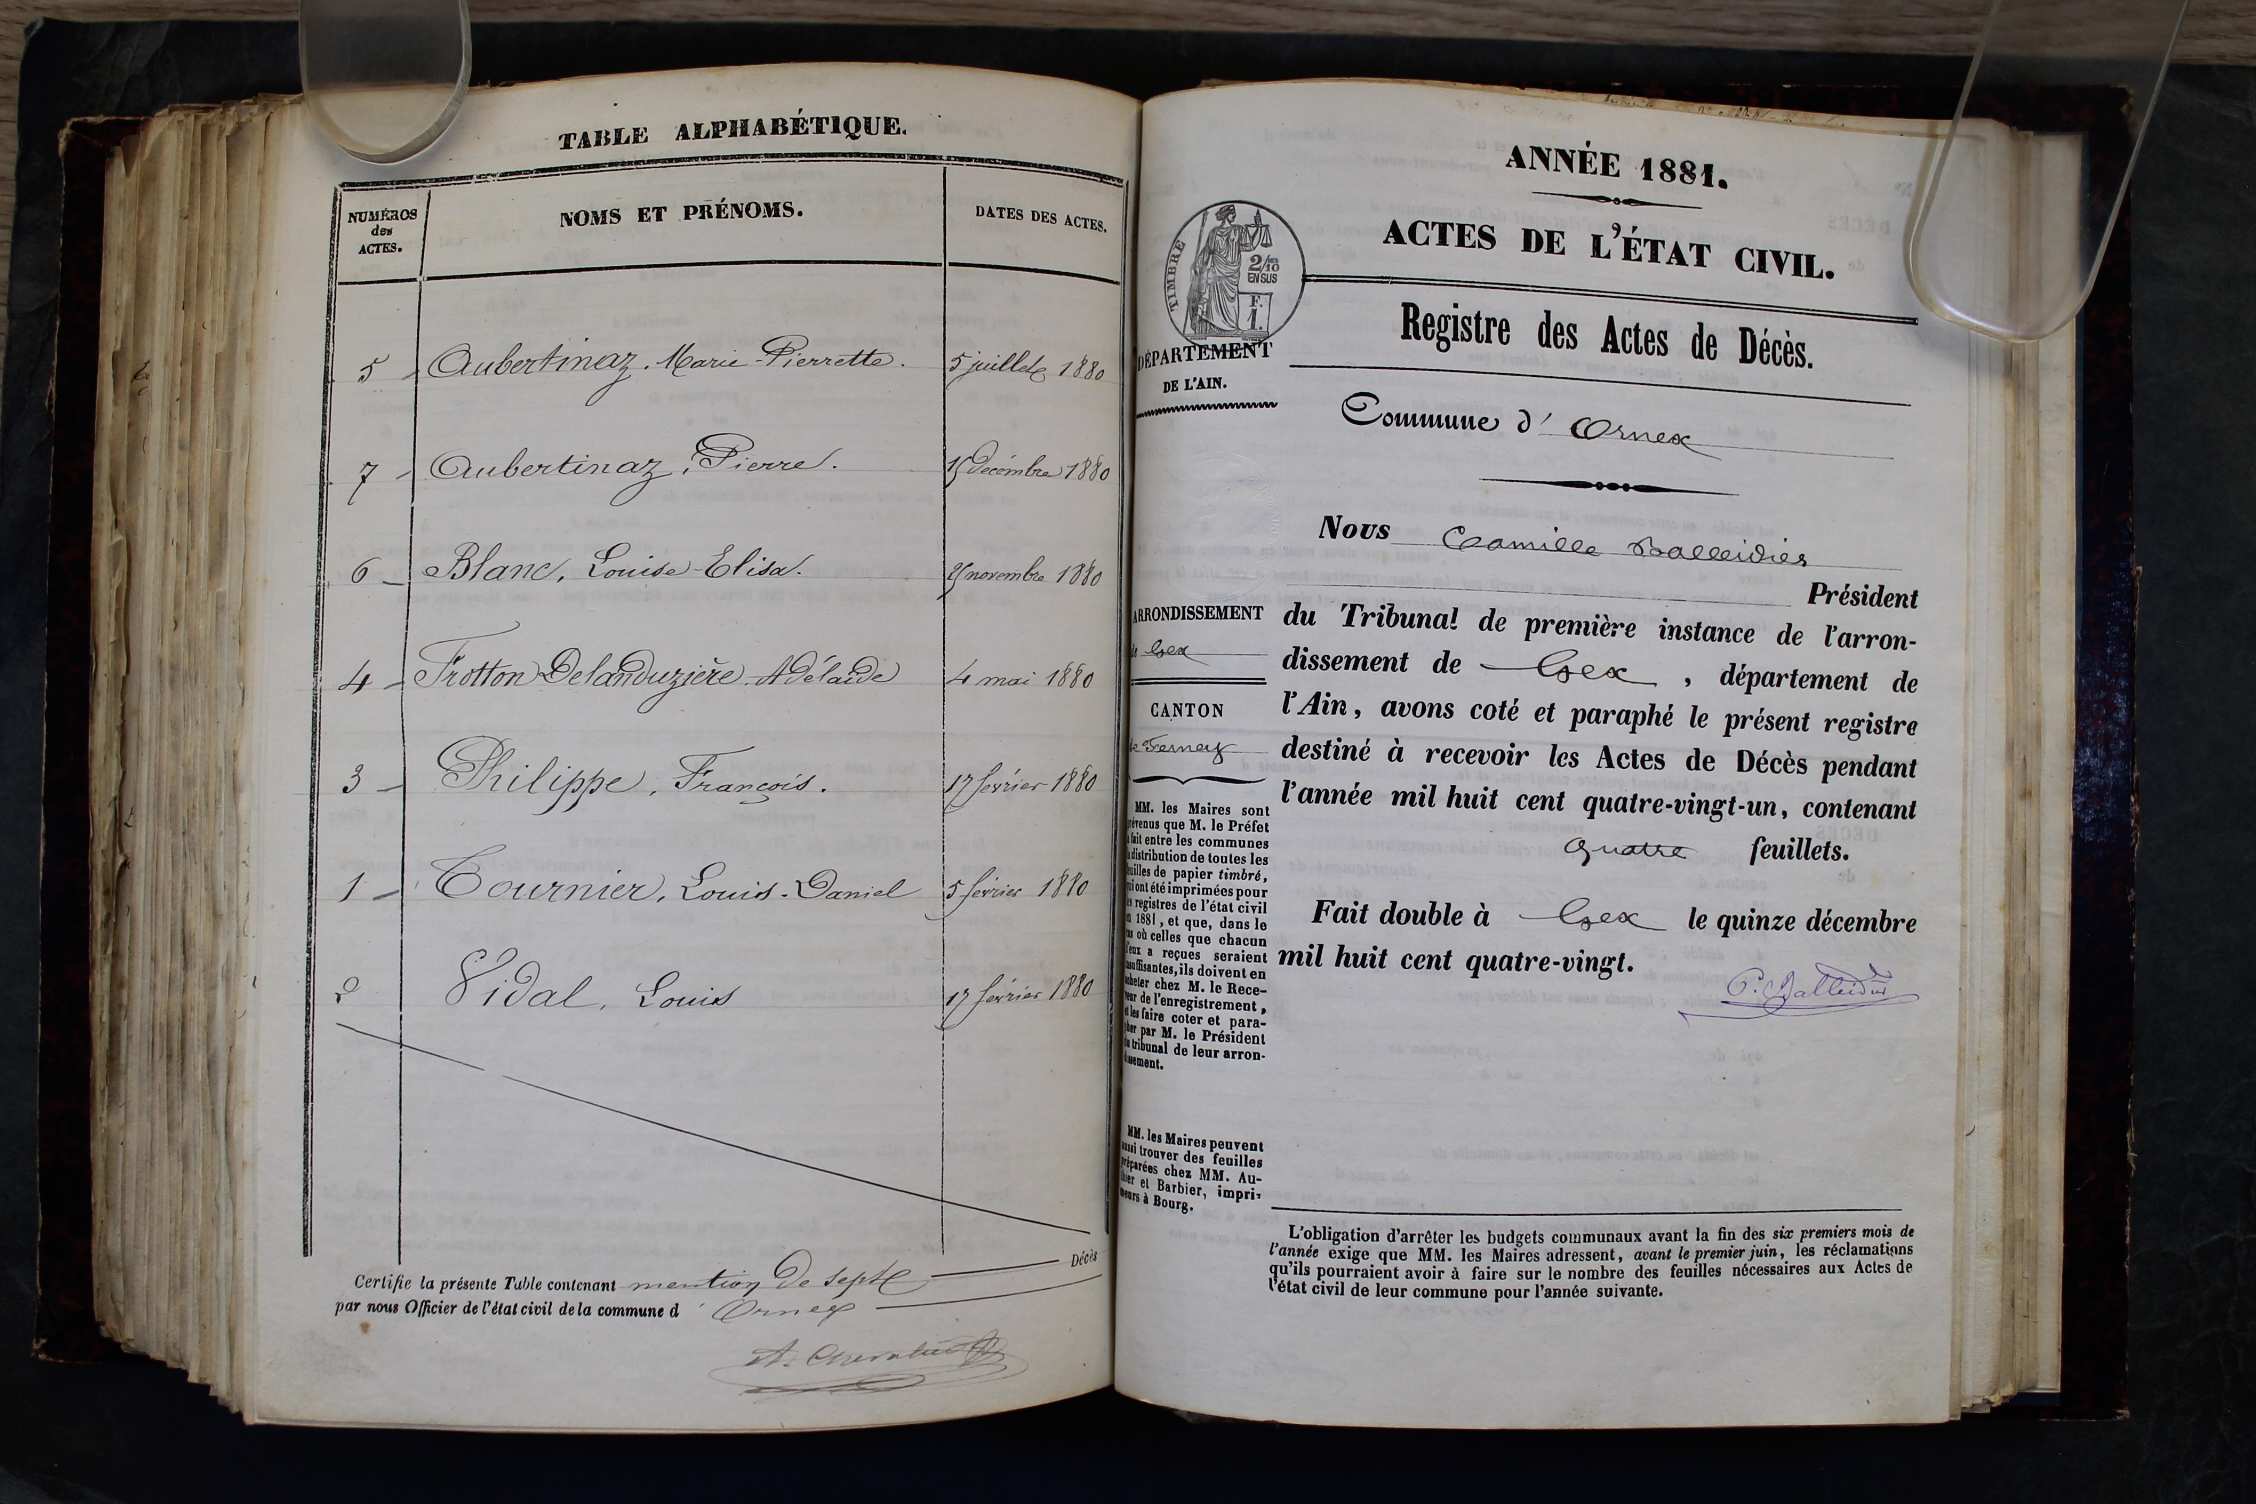 TABLE ALPHABÉTIQUE.
NUMÉROS des ACTES.
NOMS ET PRÉNOMS.
DATES DES ACTES.
5 - Aubertinaz, Marie-Pierrette. 5 juillet 1880
7 - Aubertinaz, Pierre. 15 décembre 1880
6 - Blanc, Louise-Elisa. 25 novembre 1880
4 - Frotton Delanduzière Adélaïde 4 mai 1880
3 - Philippe, François. 17 février 1880
1 - Tournier, Louis-Daniel 5 février 1880
2 Vidal, Louis 17 février 1880
Certifie la présente Table contenant mention de sept Décès
par nous Officier de l'état civil de la commune d'Ornex
ANNÉE 1881.
ACTES DE L'ÉTAT CIVIL.
TIMBRE
2/10
EN SUS
F.
1.
DÉPARTEMENT
DE L'AIN.
Registre des Actes de Décès.
Commune d'Ornex
Nous Camille Balleidier
Président
du Tribunal de première instance de l'arron-
dissement de Gex, département de
l'Ain, avons coté et paraphé le présent registre
destiné à recevoir les Actes de Décès pendant
l'année mil huit cent quatre-vingt-un, contenant
quatre feuillets.
Fait double à Gex le quinze décembre
mil huit cent quatre-vingt.
C. Balleidier
ARRONDISSEMENT
de Gex
CANTON
de Ferney
MM. les Maires sont
prévenus que M. le Préfet
a fait entre les communes
la distribution de toutes les
feuilles de papier timbré,
qui ont été imprimées pour
les registres de l'état civil
en 1881, et que, dans le
cas où celles que chacun
d'eux a reçues seraient
insuffisantes, ils doivent en
acheter chez M. le Rece-
veur de l'enregistrement,
et les faire coter et para-
pher par M. le Président
du tribunal de leur arron-
dissement.
MM. les Maires peuvent
aussi trouver des feuilles
préparées chez MM. Au-
thier et Barbier, impri-
meurs à Bourg.
L'obligation d'arrêter les budgets communaux avant la fin des six premiers mois de
l'année exige que MM. les Maires adressent, avant le premier juin, les réclamations
qu'ils pourraient avoir à faire sur le nombre des feuilles nécessaires aux Actes de
l'état civil de leur commune pour l'année suivante.